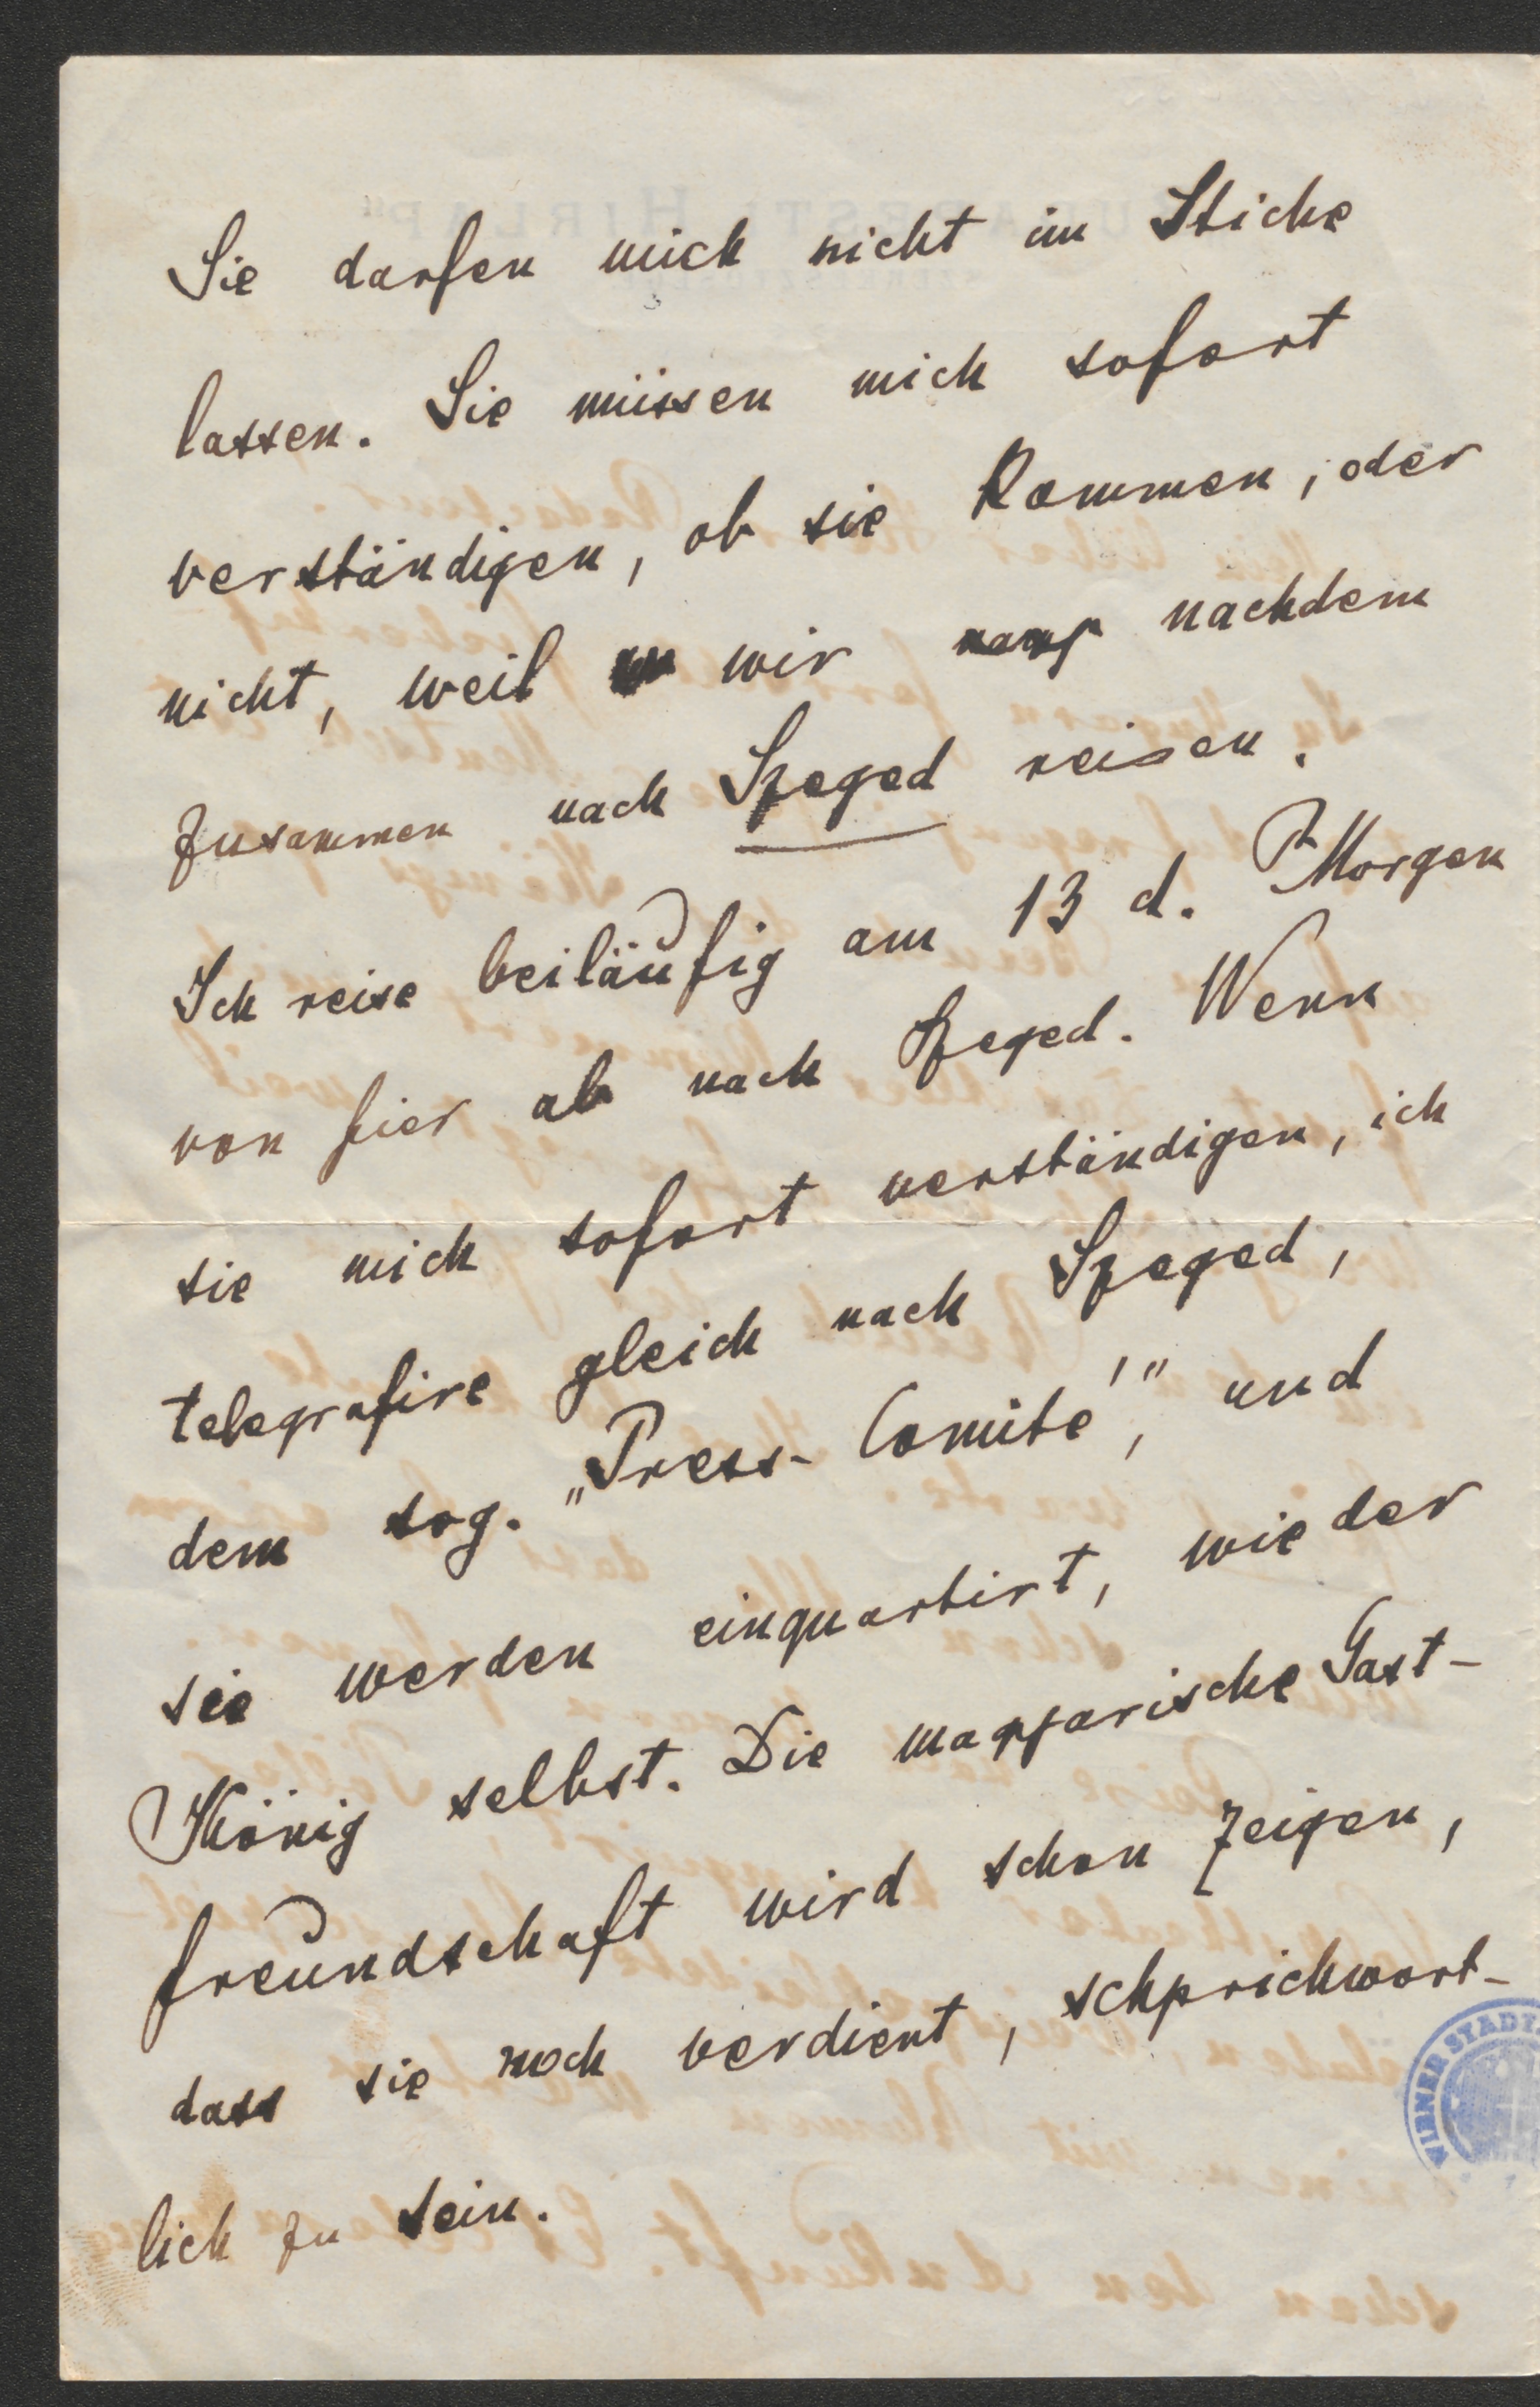 Sie darfen mich nicht im Stiche
lassen. Sie müssen mich sofort
verständigen, ob sie kommen, oder
nicht, weil wir nachdem
zusammen nach Szeged reisen.
Ich reise beiläufig am 13 d. Morgen
von hier ab nach Szeged. Wenn
sie mich sofort verständigen, ich
telegrafire gleich nach Szeged,
dem sog. „Press-Comité", und
sie werden einquartirt, wie der
König selbst. Die magyarische Gast-
freundschaft wird schon zeigen,
dass sie noch verdient, schprichwort-
lich zu sein.
WIENER STADT